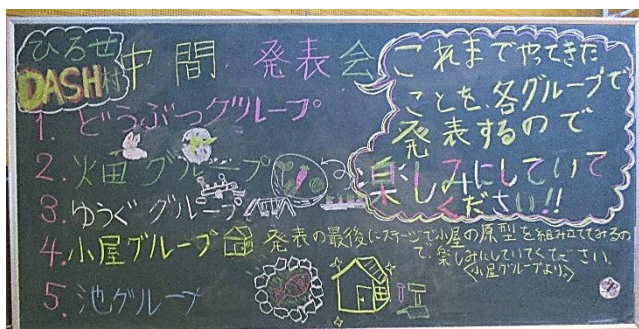 ひろせ
DASH村
中間 発表会
これまでやってきた
ことを、各グループで
発表するので
楽しみにしていて
ください!!
1. どうぶつグループ
2. 畑グループ
3. ゆうぐグループ
4. 小屋グループ
発表の最後にステージで小屋の原型を組み立ててみるの
で、楽しみにしていてください。
<小屋グループより>
5. 池グループ